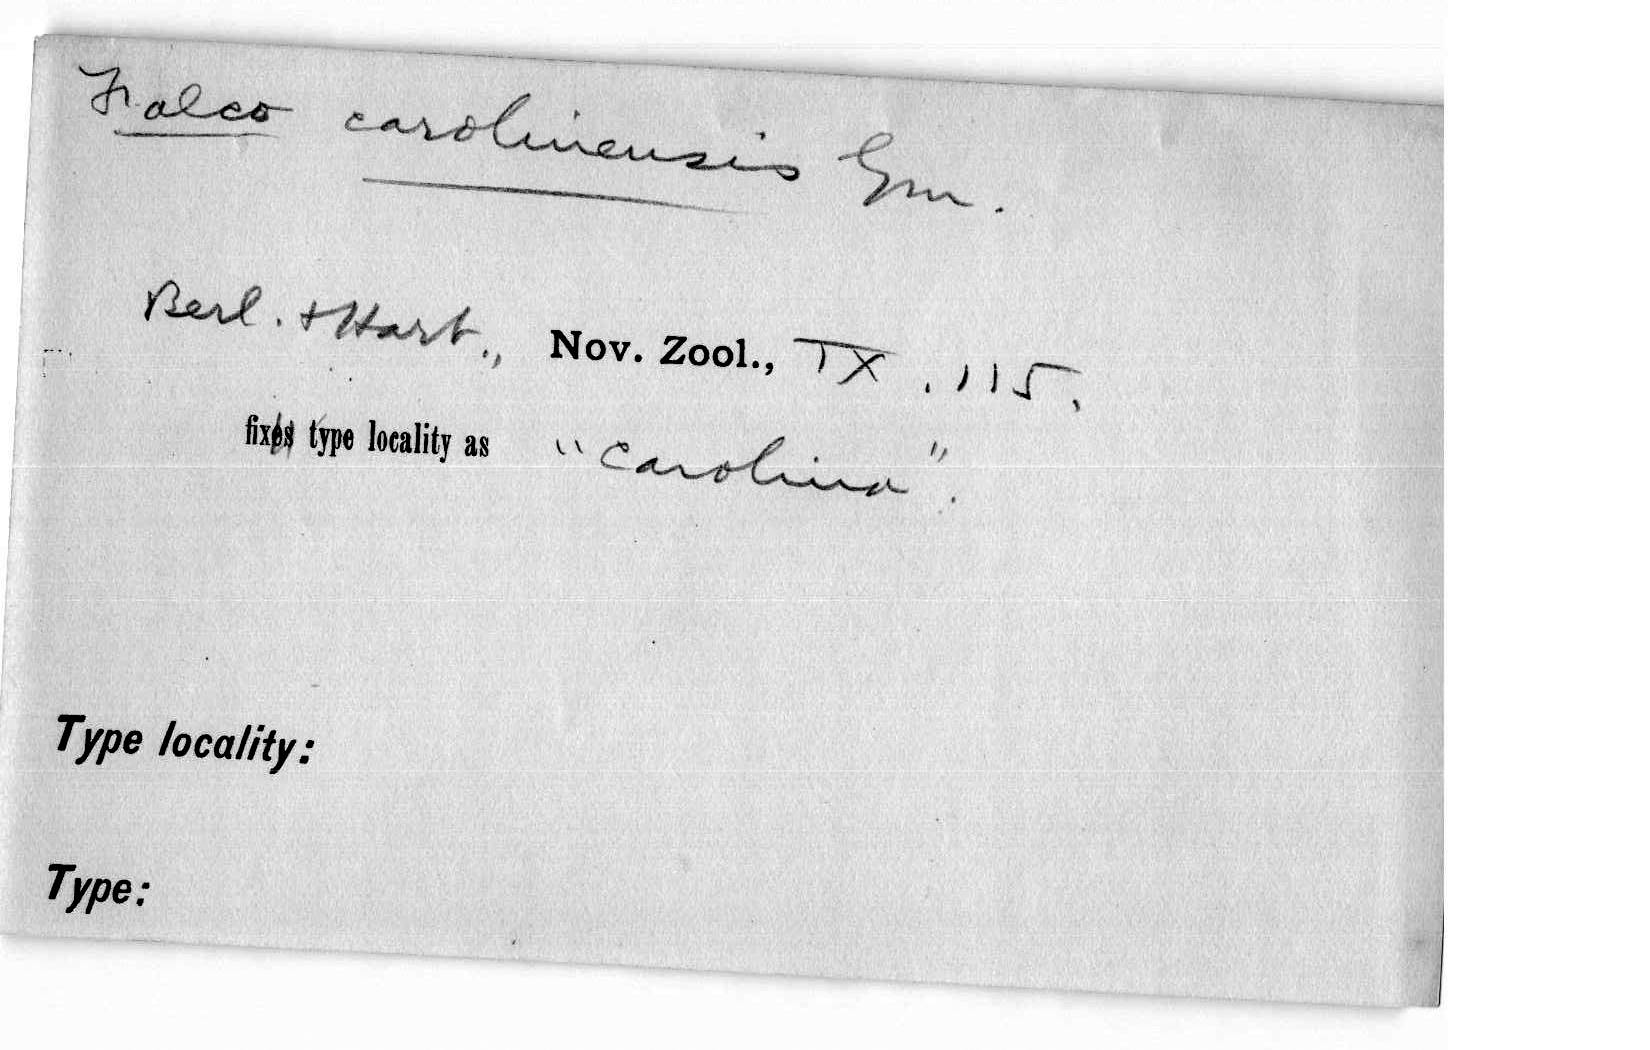 Falco carolinensis Gm.
Berl. + Hart., Nov. Zool., IX, 115.
fix type locality as "Carolina".
Type locality:
Type: